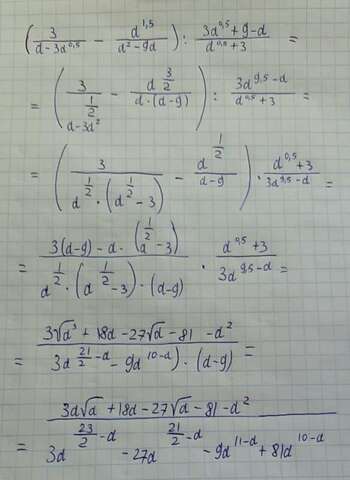 (3/(d-3d^0,5) - d^1,5/(d²-9d)) : (3d^0,5+9-d)/(d^0,5+3) =
= (3/(d-3d^(1/2)) - d^(3/2)/(d·(d-9))) : 3d^(9,5-d)/(d^0,5+3) =
= (3/(d^(1/2)·(d^(1/2)-3)) - d^(1/2)/(d-9)) · (d^0,5+3)/(3d^(9,5-d)) =
= (3(d-9)-d·(d^(1/2)-3))/(d^(1/2)·(d^(1/2)-3)·(d-9)) · (d^0,5+3)/(3d^(9,5-d)) =
= (3√d³+18d-27√d-81-d²)/(3d^(21/2-d)-9d^(10-d))·(d-9) =
= (3d√d+18d-27√d-81-d²)/(3d^(23/2-d)-27d^(21/2-d)-9d^(11-d)+81d^(10-d))